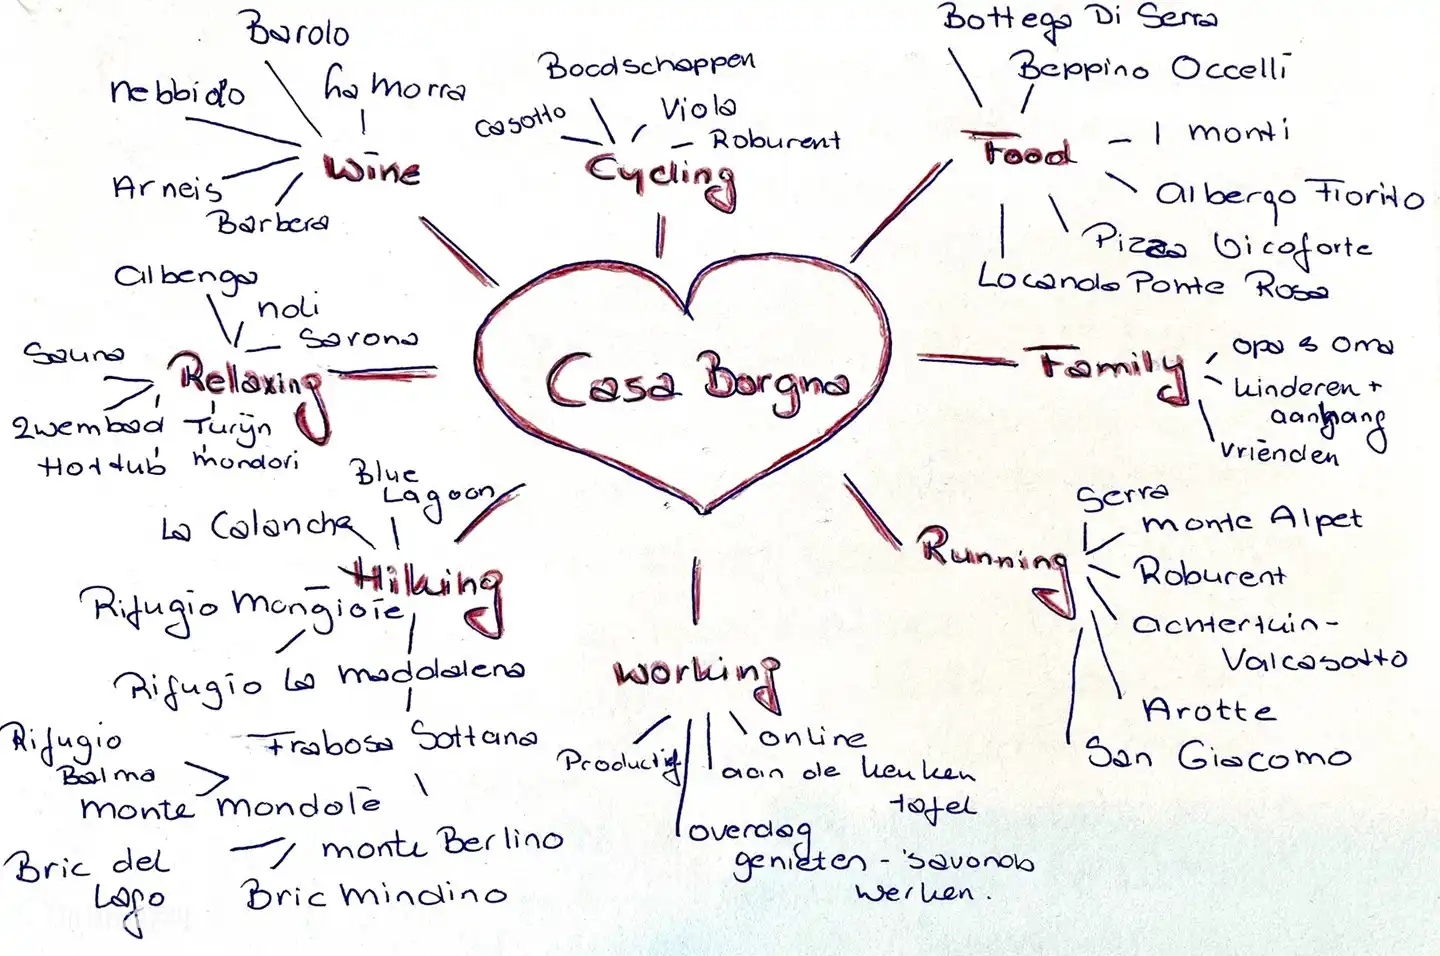 Casa Borgna
Wine
Barolo
La Morra
Nebbiolo
Arneis
Barbera
Cycling
Boodschappen
Casotto
Viola
Roburent
Food
Bottega Di Serra
Beppino Occelli
I monti
Albergo Fiorito
Pizza Vicoforte
Locanda Ponte Rosa
Family
opa & oma
kinderen +
aanhang
vriënden
Running
Serra
monte Alpet
Roburent
achtertuin-
Valcasotto
Arotte
San Giacomo
Working
online
aan de keuken
tafel
overdag
genieten - 'savonds
werken.
Productief
Hilking
Blue
Lagoon
La Colancha
Rifugio Mongioie
Rifugio La maddalena
Frabosa Sottana
Rifugio
Balma
monte mondolè
monte Berlino
Bric del
Lago
Bric Mindino
Relaxing
Albenga
noli
Savona
Sauna
Zwembad
Hottub
Turijn
mondovi